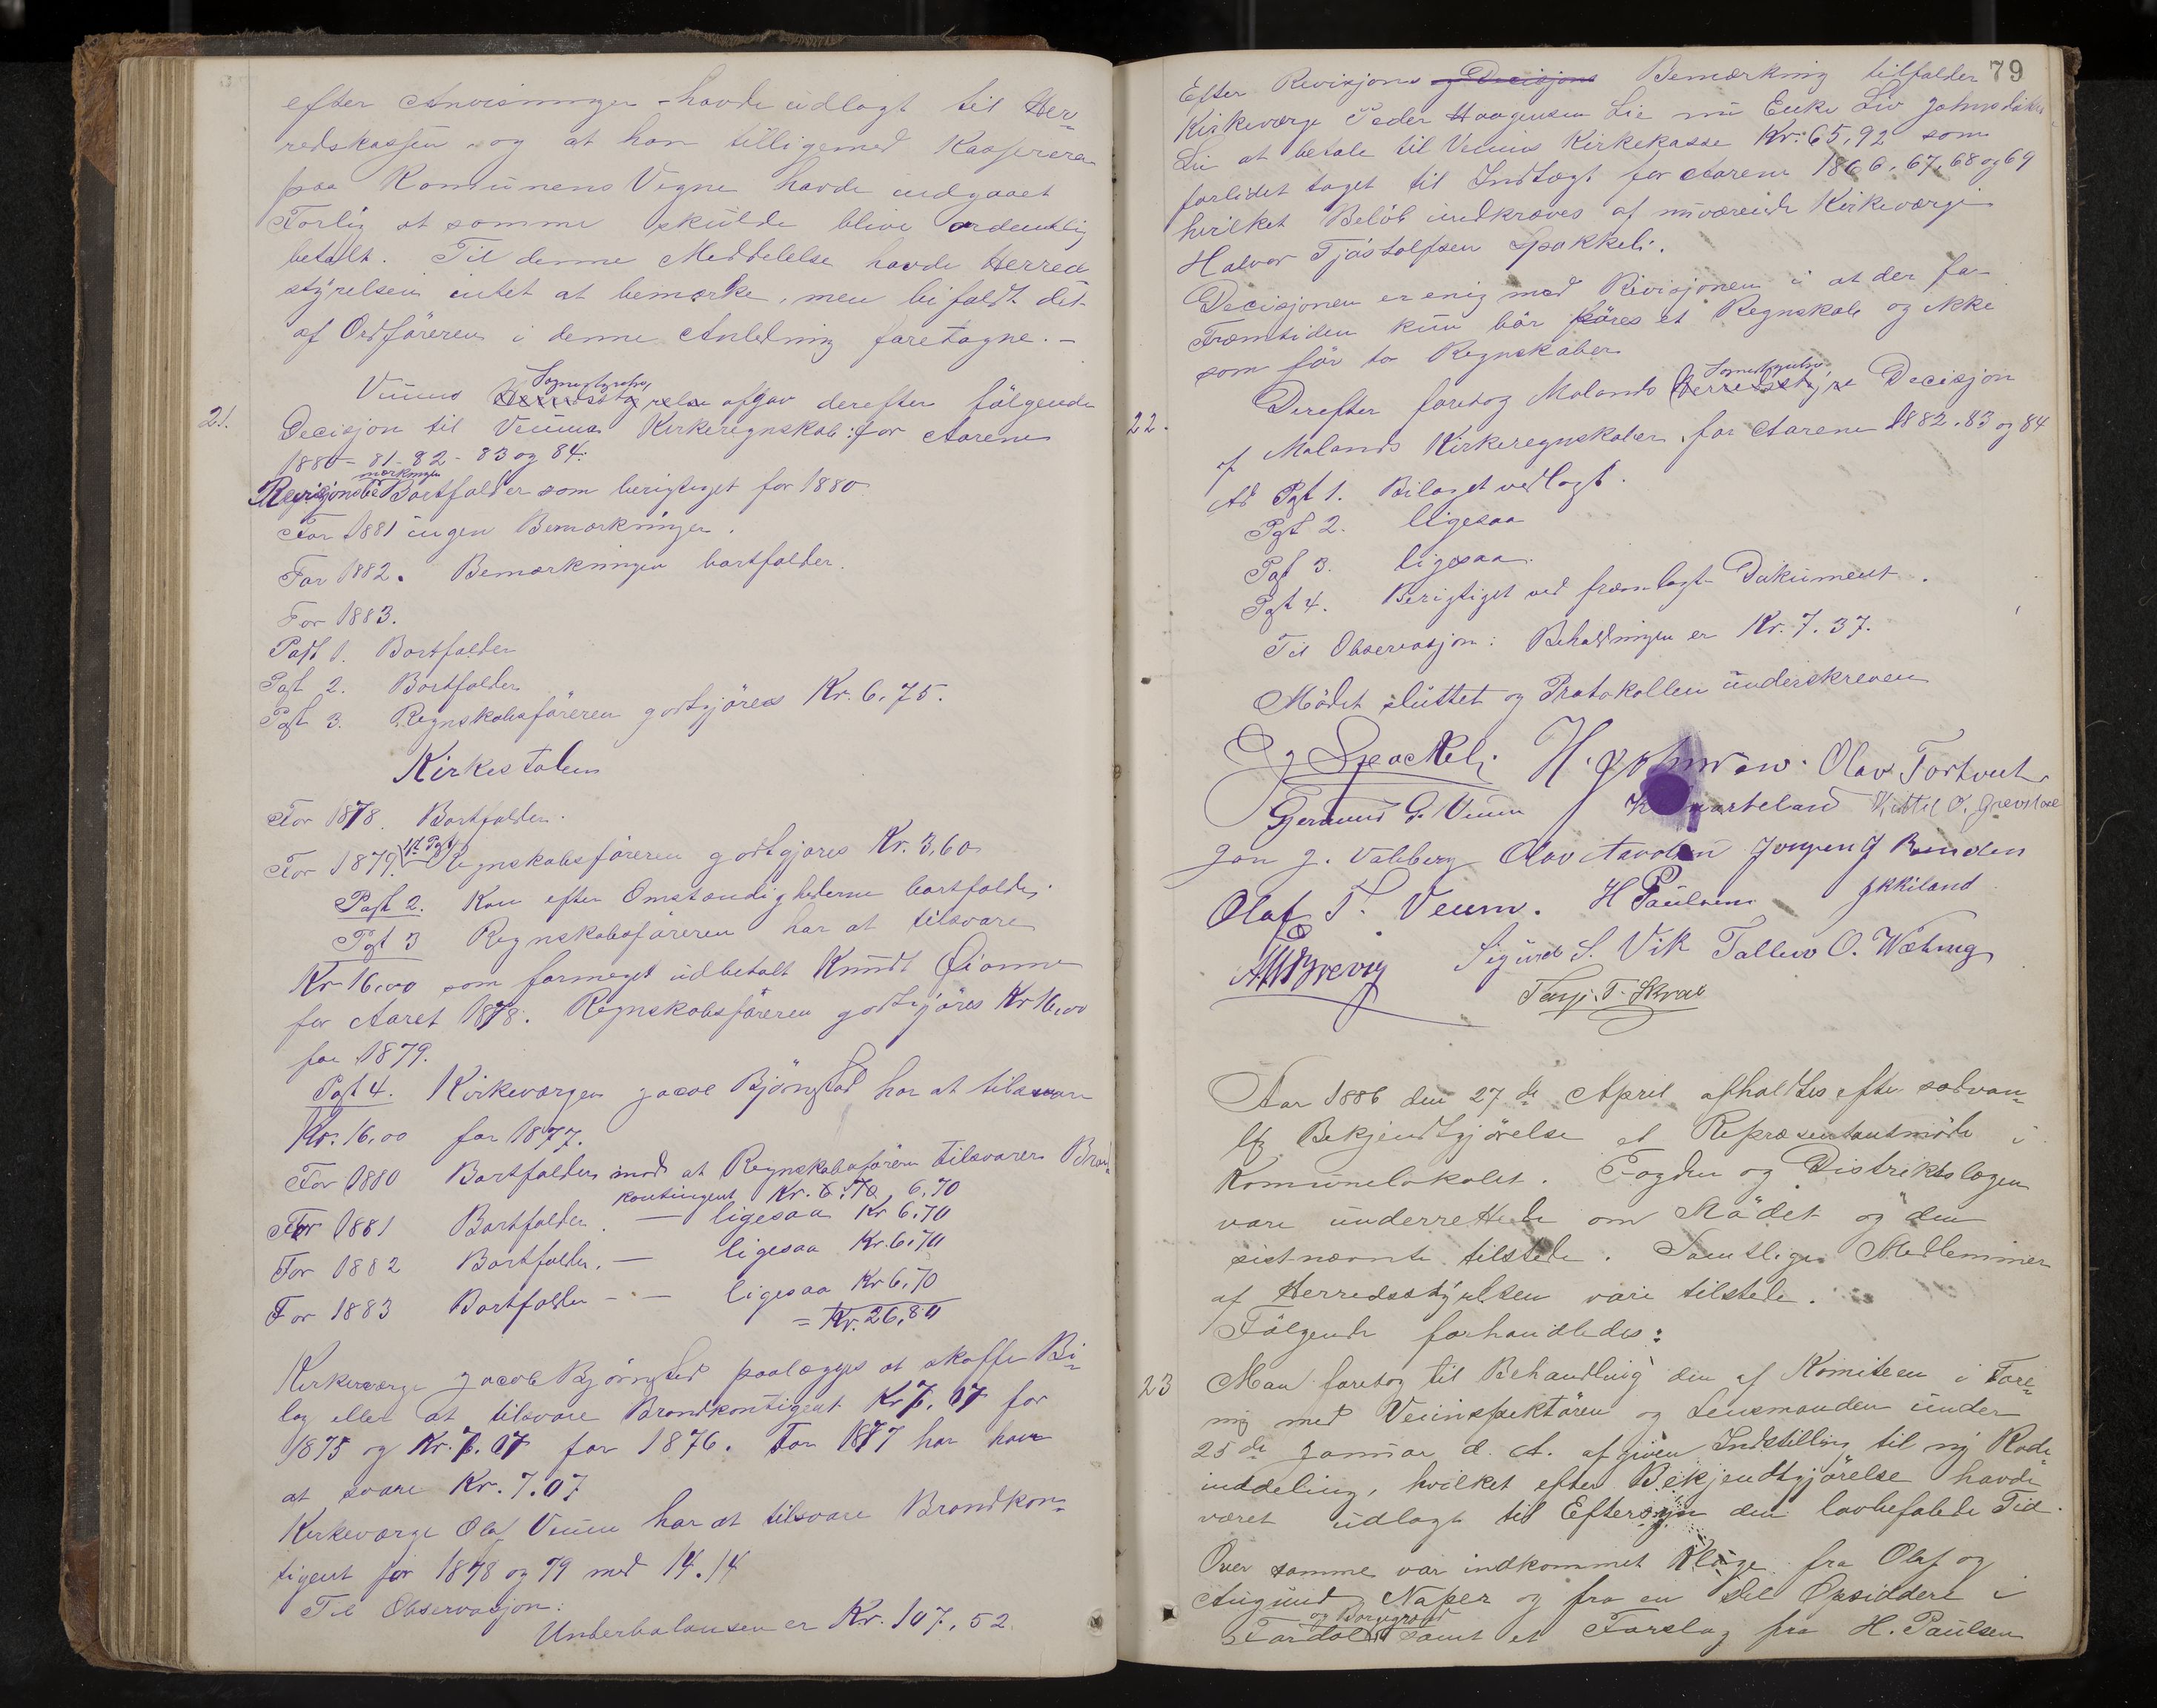 efter Anvisninger havde udlagt til Her=
redskassen og at han tilligemed Kasserer
paa Komunens Vegne havde indgaaet
Forlig at somme skulde blive ordentlig
betalt. Til denne Meddelelse havde Herred
styrelsen intet at bemærke, men bifaldt det
af Ordføreren i denne Anledning foretagne. –
Sognestyrelse
21. Vinns Herredsstyrelse afgav derefter følgende
Decisjon til Vinns Kirkeregnskab for Aarene
1880 – 81 – 82 – 83 og 84:
mærkningen
Revisjonsbe Bortfalder som berigtiget for 1880
For 1881 ingen Bemærkninger.
For 1882. Bemærkningen bortfalder.
For 1883.
Post 1. Bortfalder
Post 2. Bortfalder
Post 3. Regnskabsføreren godtgjøres Kr. 6,75.
Kirkestolen
For 1878. Bortfalder.
For 1879. 1ste Post Regnskabsføreren godtgjøres Kr. 3,60
Post 2. Kan efter Omstændighederne bortfalde.
Post 3 Regnskabsføreren har at tilsvare
Kr 16,00 som formeget udbetalt Knudt
for Aaret 1878. Regnskabsføreren godtgjøres Kr 16,00
for 1879.
Post 4. Kirkeværgen Jacob Bjørnstad har at tilsvare
Kr. 16,00 for 1877.
For 1880 Bortfalder mod at Regnskabsføreren tilsvarer Bran=
kontingent Kr. 6,70, 6,70
For 1881 Bortfalder. — ligesaa Kr 6,70
For 1882 Bortfalder. — ligesaa Kr. 6,70
For 1883 Bortfalder — — ligesaa Kr 6,70
= Kr. 26,80
Kirkeværge Jacob Bjørnstad paalægges at skaffe Bi=
lag eller at tilsvare Brandkontigent Kr 7,07 for
1875 og Kr. 7,07 for 1876. For 1877 har han
at svare Kr. 7.07
Kirkeværge Olaf Vinn har at tilsvare Brandkon=
tigent for 1878 og 79 med 14.14
Til Observasjon:
Underbalansen er Kr. 107,52.
79
Efter Revisjons og Decisjons Bemærkning tilfalder
Kirkeværge Peder Haagensen Lie nu Enke Liv Johnsdatter
Lie at betale til Vinns Kirkekasse Kr: 65,92 som
forlidet taget til Indtægt for Aarene 1866, 67, 68 og 69
hvilket Beløb indkræves af nuværende Kirkeværge
Halvor Tjøstolfsen Spokkeli.
Decisjonen er enig med Revisjonen i at der for
Fremtiden kun bør føres et Regnskab og ikke
som før to Regnskaber
Sognestyrelse
22. Derefter foretog Molands Herredsstyre Decisjon
af Molands Kirkeregnskaber for Aarene 1882, 83 og 84
Ad Pgt 1. Bilaget vedlagt.
Pgt 2. ligesaa
Pgt 3. ligesaa.
Pgt 4. Berigtiget ved fremlagt Dokument.
Til Observasjon: Beholdningen er Kr. 7.37.
Mødet sluttet og Protokollen underskreven
Spockeli H. Johnson. Olav Tortveit
Germund G. Vinn Kvarteland Kittil O. Grevstoel
Jon J. Valberg Olav Aavolsen Jørgen J Ramden
Olaf T. Veum. H Paulsen
Sigurd S. Vik Tallev O. Wæhng
Terje T. Skrae
Aar 1886 den 27de April afholdtes efter sædvan=
lig Bekjendtgjørelse et Repræsentantmøde i
Komunelokalet. Fogden og Distriktslægen
vare underrettede om Mødet og den
sistnævnte tilstede. Samtlige Medlemmer
af Herredsstyrelsen vare tilstede.
Følgende forhandledes:
23 Man foretog til Behandling den af Komiteen i Fore=
ning med Veiinspektøren og Lensmanden under
25de Januar d. A. afgiven Indstilling til ny Rode=
inddeling, hvilket efter Bekjendtgjørelse havde
været udlagt til Eftersyn den lovbefalede Tid.
Over samme var indkommet Klage fra Olaf og
Augund Naper og fra en Del Opsiddere i
og Borgegrænd
Fardal samt et Forslag fra H. Paulsen